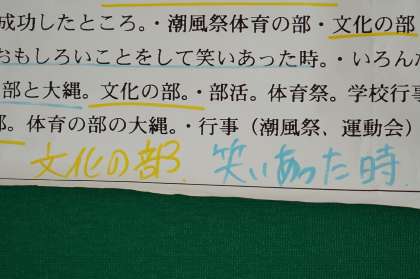 成功したところ。・潮風祭体育の部・文化の部
おもしろいことをして笑いあった時。・いろんな
部と大縄。文化の部。・部活。体育祭。学校行事
部。体育の部の大縄。・行事（潮風祭、運動会）
文化の部 笑いあった時